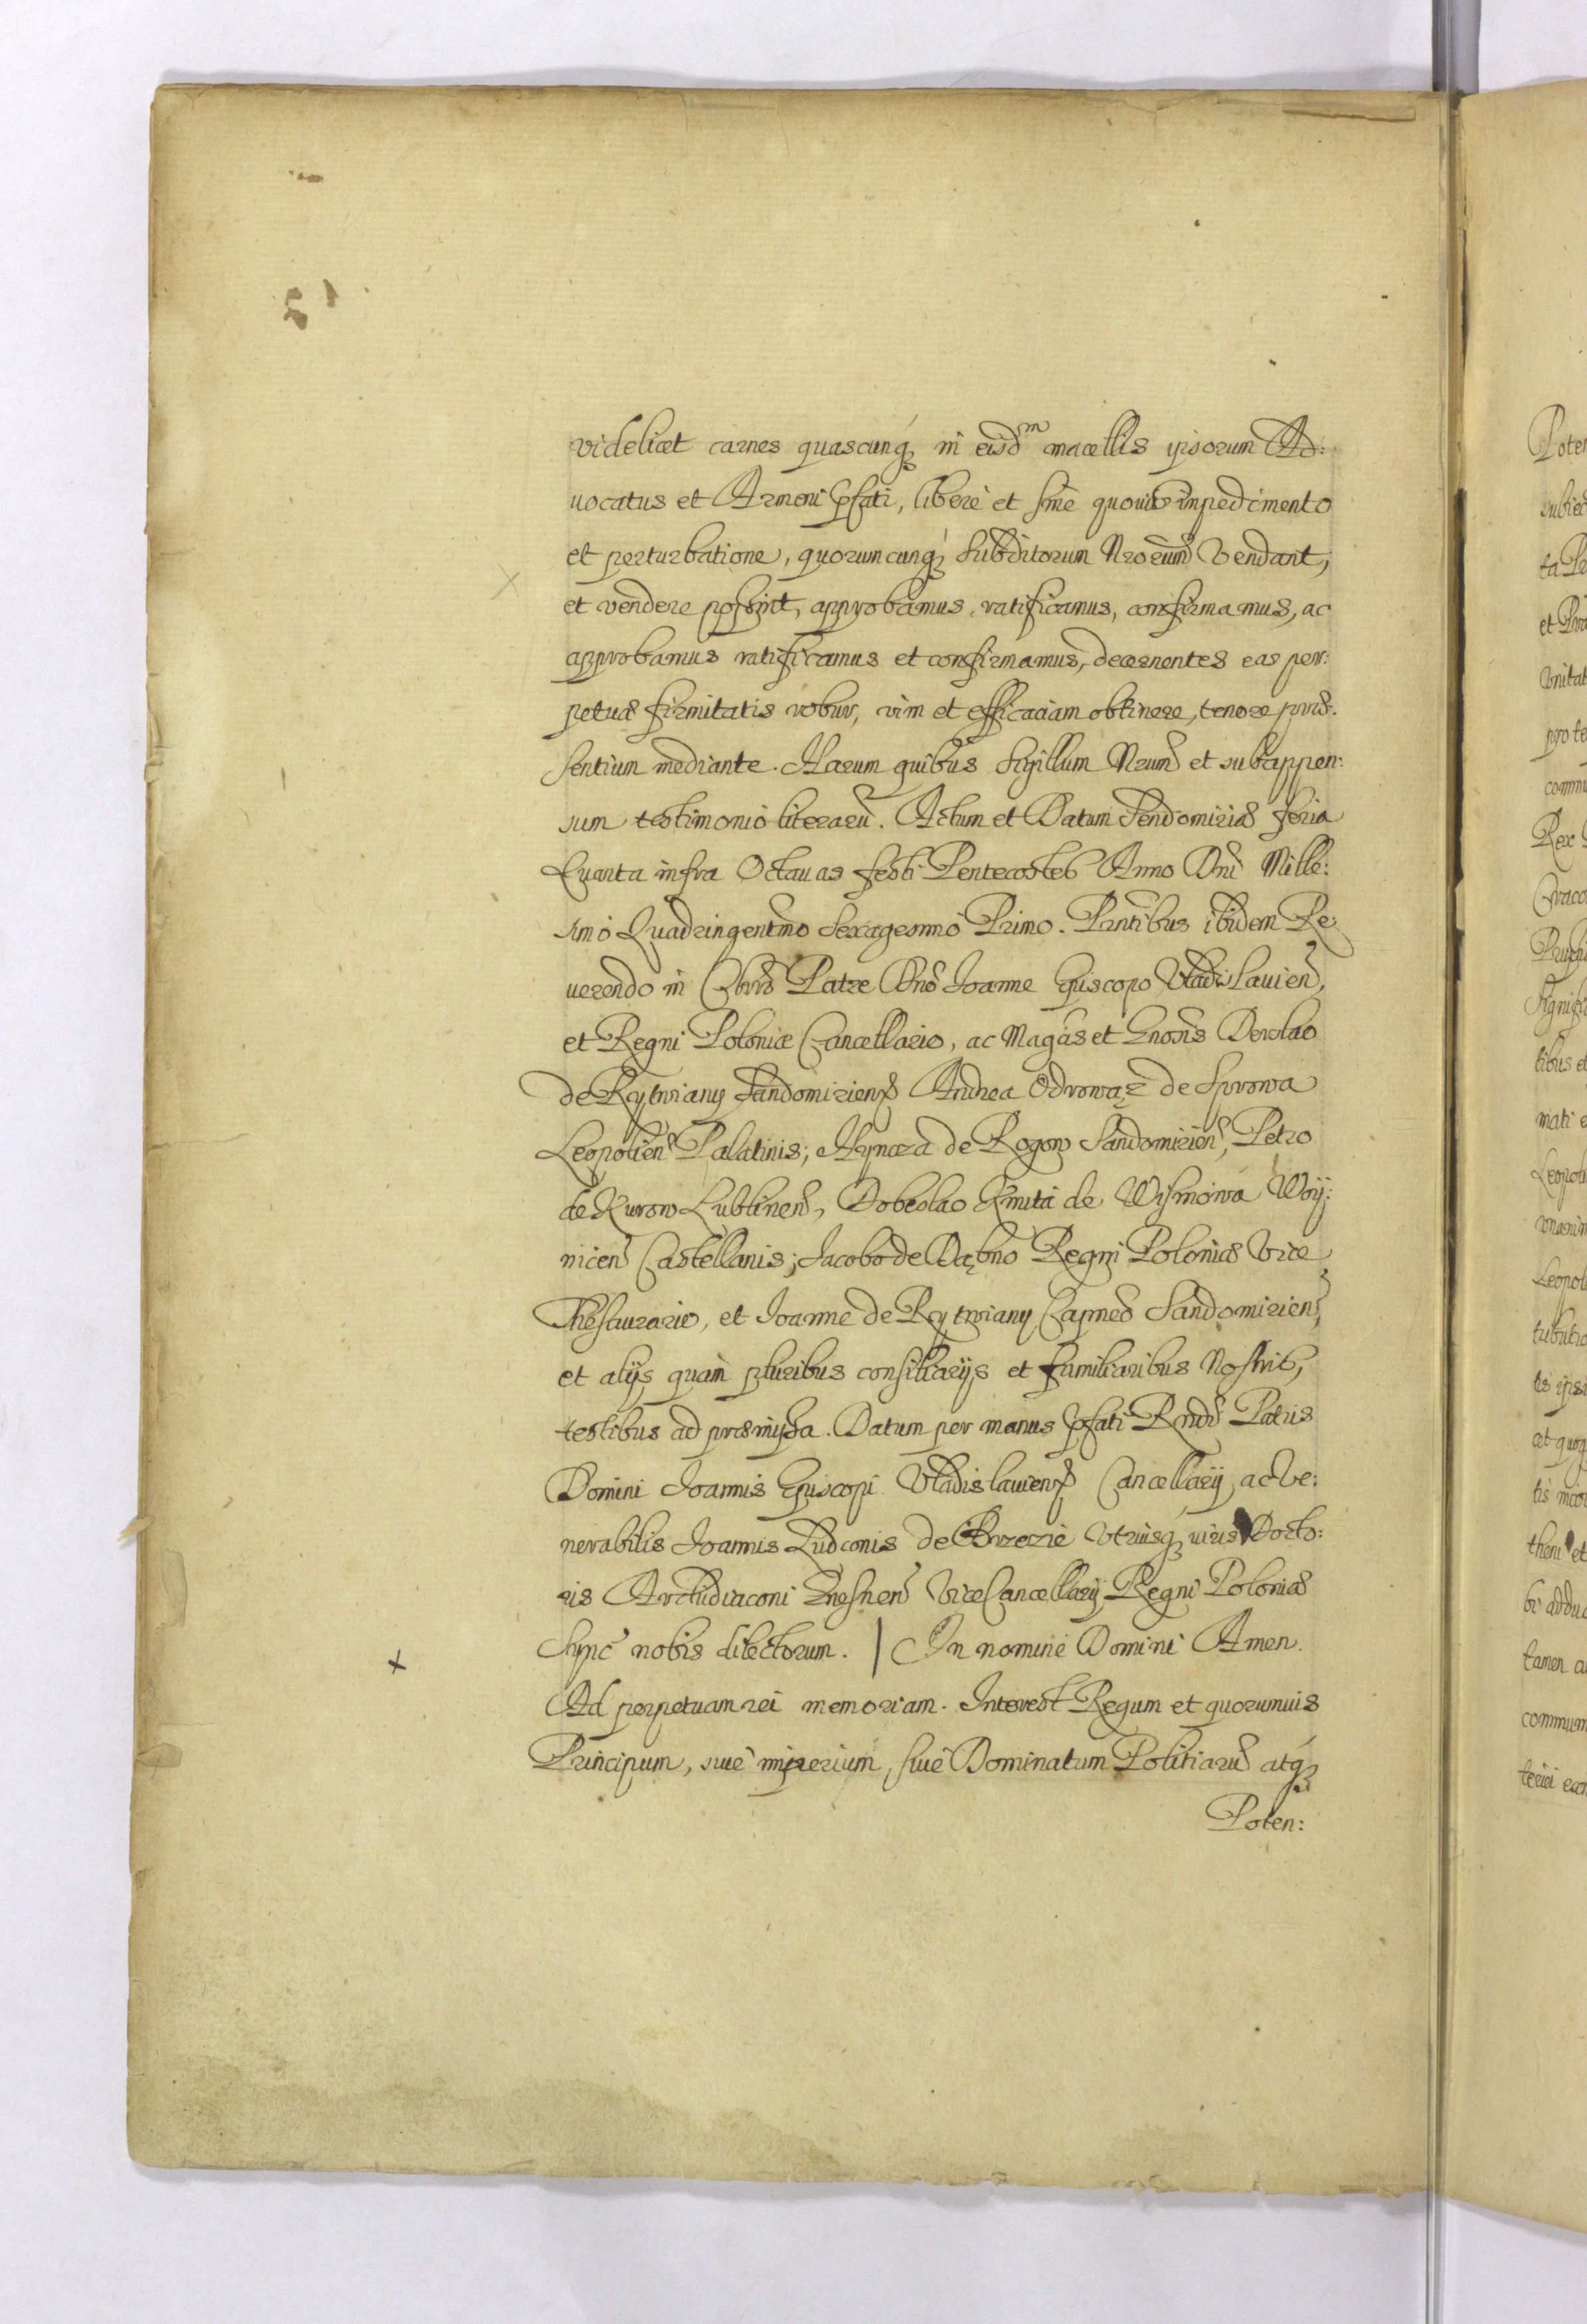 videlicet carnes quascunq; in eisd<sup>m</sup> macellis ipsorum Ad:
uocatus et Armeni pfati, libere et sine quouis impedimento
et perturbatione, quoruncunq; subditorum Nrorum Vendant,
et vendere possint, approbamus, ratificamus, confirmamus, ac
approbamus ratificamus et confirmamus, decernentes eas per:
petuæ firmitatis robur, vim et efficaciam obtinere, tenore præ:
sentium mediante. Harum quibus Sigillum Nrum et subappen:
sum testimonio literaru. Actum et Datum Sendomiriæ feria
Quarta infra Octauas festi Pentecostes Anno Dni Mille:
simo Quadringentmo Sexagesimo Primo. Pntibus ibidem Re:
uerendo in Chro Patre Dno Joanne Episcopo Vladislauien,
et Regni Poloniæ Cancellario, ac Magcis et Gnosis Derslao
de Rytwiany Sandomirien Andrea Odrowąz de Sprowa
Leopolien Palatinis; Hyncza de Rogow Sandomirien, Petro
de Kurow Lublinen, Dobeslao Kmita de Wisnowa Woy:
nicen Castellanis; Jacobo de Dąbno Regni Poloniæ Vice
Thesaurario, et Joanne de Rytwiany Capneo Sandomirien,
et alijs quam pluribus consiliarijs et familiaribus Nostris,
testibus ad præmissa. Datum per manus pfati Rndi Patris
Domini Joannis Episcopi Vladislauien Cancellarij, ac Ve:
nerabilis Joannis Ludconis de Brzezie Vtriusq; iuris Docto:
ris Archidiaconi Gnesnen ViceCancellarij Regni Poloniæ
Sync nobis dilectorum. | In nomine Domini Amen.
Ad perpetuam rei memoriam. Interest Regum et quorumuis
Principum, siue imperium, siue Dominatum Politiaru atq;
Poten: